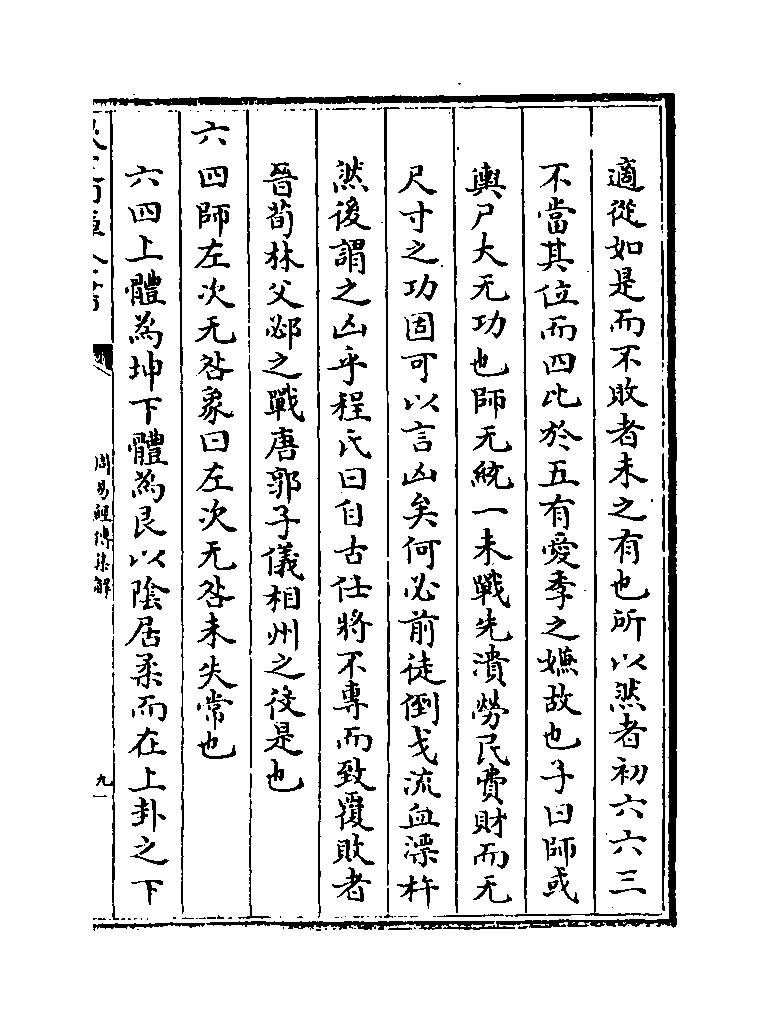 適從如是而不敗者未之有也所以然者初六六三
不當其位而四比於五有愛季之嫌故也子曰師或
輿尸大无功也師无統一未戰先潰勞民費財而无
尺寸之功固可以言凶矣何必前徒倒戈流血漂杵
然後謂之凶乎程氏曰自古任將不專而致覆敗者
晉荀林父邲之戰唐郭子儀相州之役是也
六四師左次无咎象曰左次无咎未失常也
六四上體為坤下體為艮以陰居柔而在上卦之下
周易經傳集解
九一